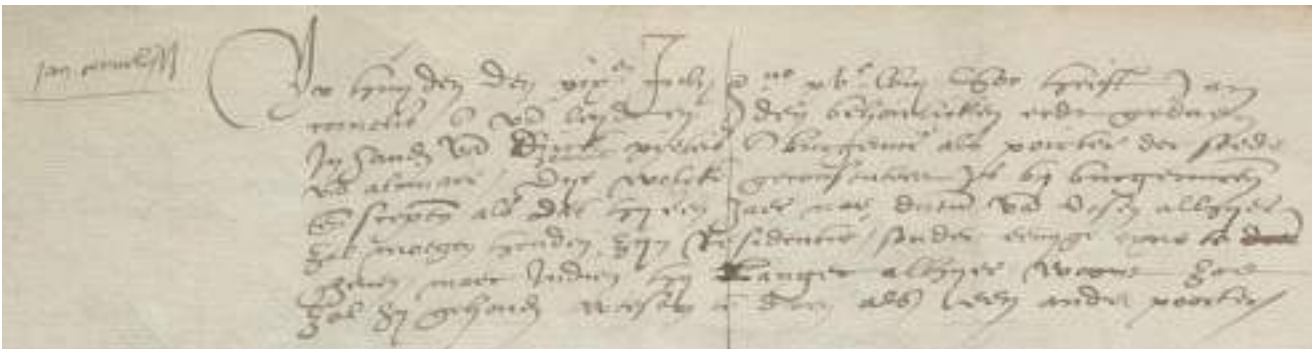 Jan cornelisz
Op huyden den xix en July a° xv c lvij soe heeft Jan
cornelis z va leyden den behoorlicken eedt gedaen
In handen va Dirck pieters z burgemr als poirter der stede
va alcmaer / Dye welcke geconsenteert is bij burgermrn
en scepen als dat hij een Jaer nae datum va desen alhyer
zal moegen houden zijn Residencie / sonder eenige te
geven maer Indien hij langer alhyer woent zoe
zal hij gehouden wesen te doen als een ander poorter